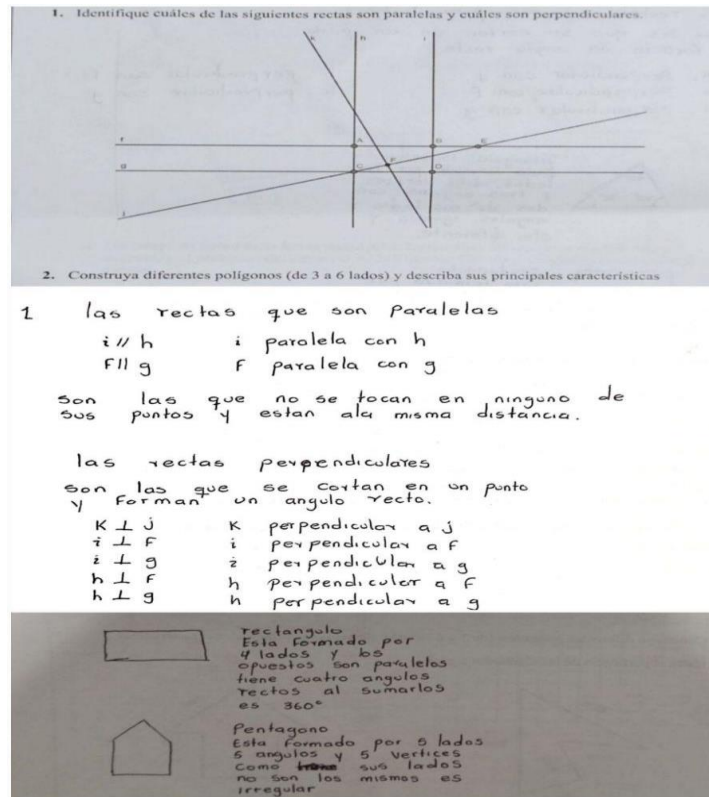 1. Identifique cuáles de las siguientes rectas son paralelas y cuáles son perpendiculares.
k h i
f A B E
g C F D
j
2. Construya diferentes polígonos (de 3 a 6 lados) y describa sus principales características
1 las rectas que son Paralelas
i // h i paralela con h
F // g F paralela con g
son las que no se tocan en ninguno de
sus puntos y estan ala misma distancia.
las rectas perpendiculares
son las que se cortan en un punto
y Forman un angulo recto.
K ⊥ j K perpendicular a j
i ⊥ F i perpendicular a F
i ⊥ g i perpendicular a g
h ⊥ F h perpendicular a F
h ⊥ g h perpendicular a g
rectangulo
Esta Formado por
4 lados y los
opuestos son paralelos
tiene cuatro angulos
rectos al sumarlos
es 360°
Pentagono
Esta Formado por 5 lados
5 angulos y 5 vertices
como sus lados
no son los mismos es
irregular